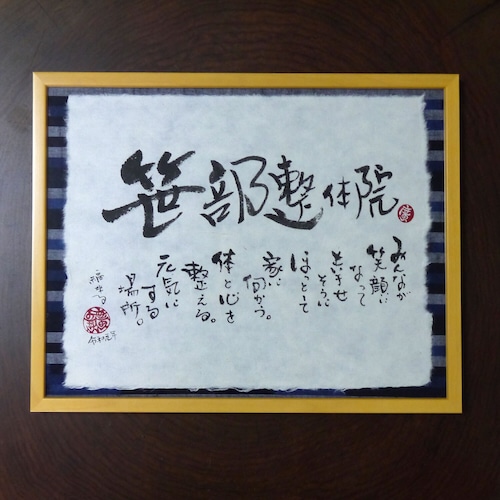 笹部整体院
みんなが
笑顔に
なって
幸せ
そうに
ほっとして
家に
向かう。
体と心を
整える。
元気に
する
場所。